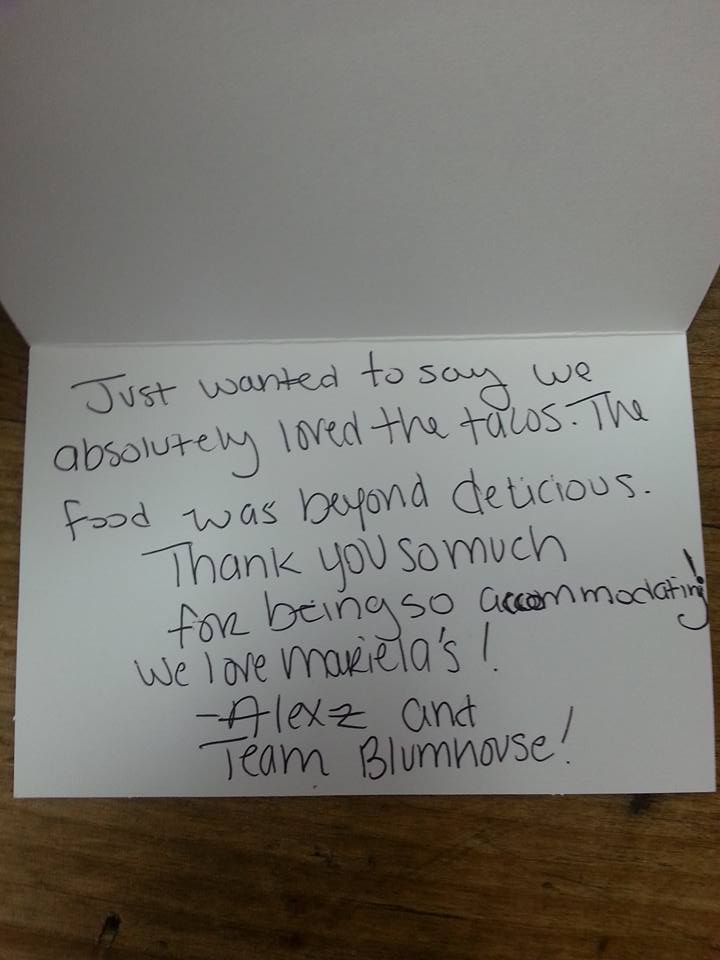 Just wanted to say we
absolutely loved the tacos. The
food was beyond delicious.
Thank you so much
for being so accommodating!
We love Mariela's!
-Alexz and
Team Blumhouse!